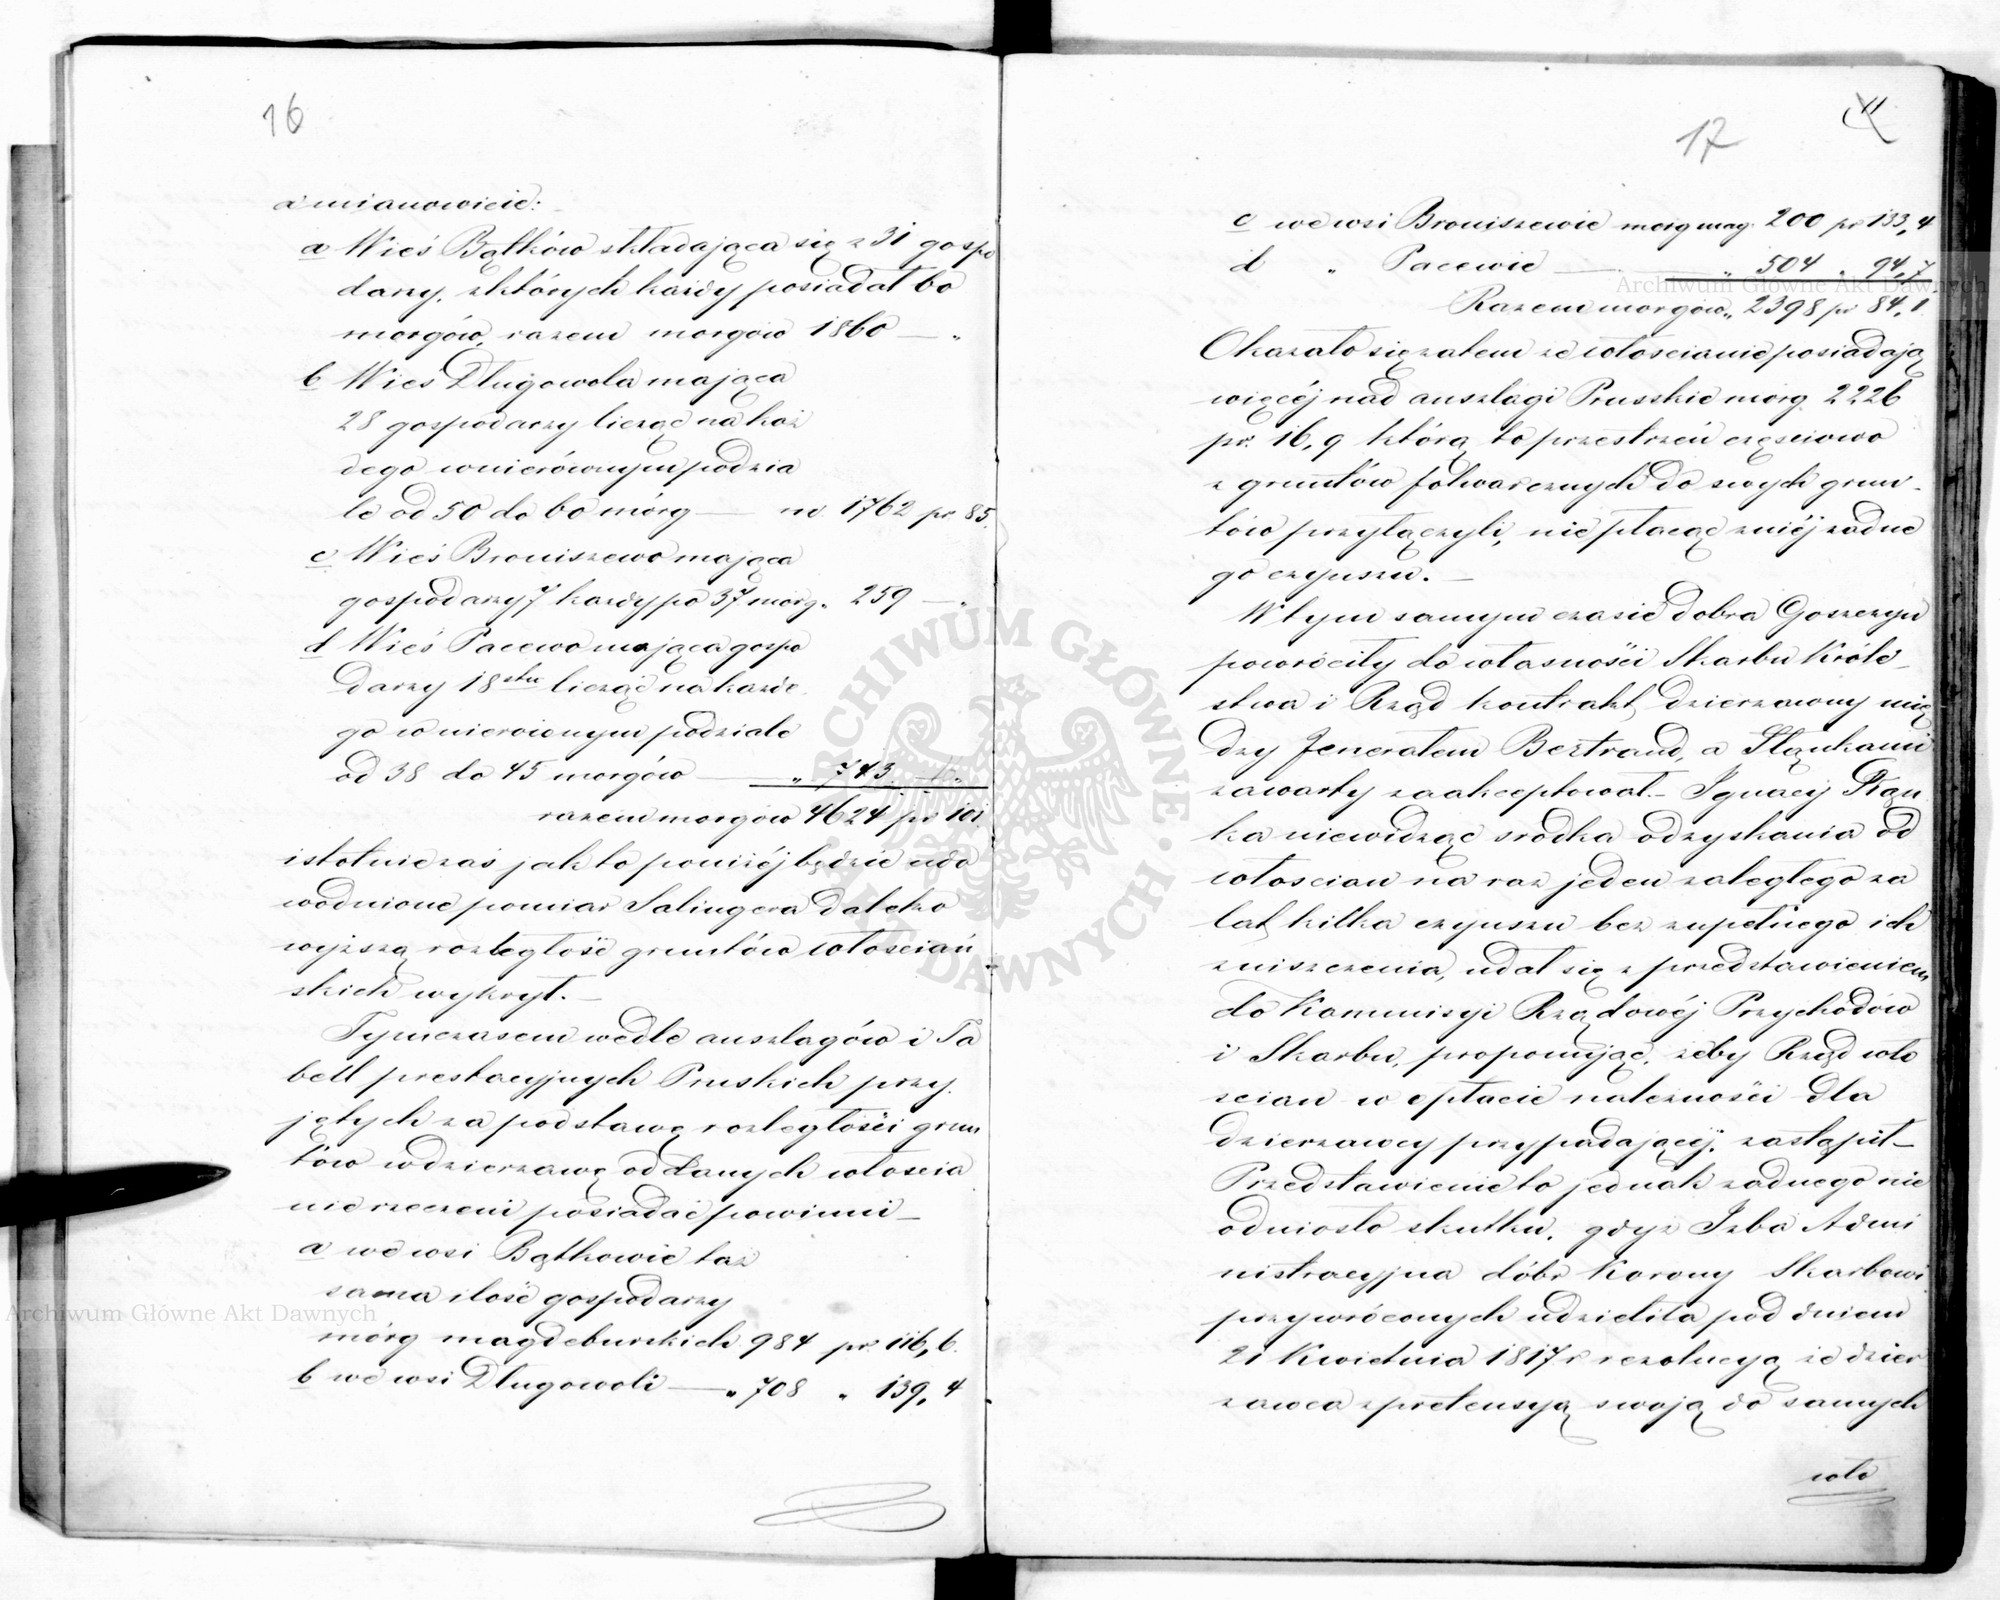 16
a mianowicie:
a Wieś Bątków składająca się z 31 gospo
darzy, z których każdy posiadał 60
morgów, razem morgów 1860 — „
b Wieś Długowola mająca
28 gospodarzy licząc na każ
dego w nierównym podzia
le od 50 do 60 mórg — m. 1762 pr. 85.
c Wieś Broniszewo mająca
gospodarzy 7 każdy po 37 mórg „ 259 — „
d Wieś Pacewo mająca gospo
darzy 18stu licząc na każde
go w nierównym podziale
od 38 do 45 morgów — „ 743. 16 „
razem morgów 4624 pr 101.
istotnie zaś jak to poniżéj będzie udo
wodnione pomiar Salingera daleko
wyższą rozległość gruntów włościań
skich wykrył. —
Tymczasem wedle anszlagów i Ta
bell prestacyjnych Pruskich przy
jętych za podstawę rozległości grun
tów w dzierżawę oddanych włościa
nie rzeczeni posiadać powinni —
a we wsi Bątkowie taż
sama ilość gospodarzy
mórg magdeburskich 984 pr. 116,6.
b we wsi Długowoli — „ 708 „ 139,4
17
11
c we wsi Broniszewie mórg mag. 200 pr 133,4
d „ Pacewie — „ 504 „ 94,7
Razem morgów „ 2398 pr 84,1
Okazało się zatem że włościanie posiadają
więcéj nad anszlagi Prusskie mórg. 2226
pr. 16,9 którą to przestrzeń częściowo
z gruntów folwarcznych do swych grun-
tów przyłączyli, nie płacąc zniéj żadne
go czynszu. —
W tym samym czasie dobra Goszczyn
powróciły do własności Skarbu Króle-
stwa i Rząd kontrakt dzierżawny mię
dzy Jenerałem Bertrand, a Płąnkami
zawarty zaakceptował. – Ignacy Płąn
ka niewidząc środka odzyskania od
włościan na raz jeden zaległego za
lat kilka czynszu bez zupełnego ich
zniszczenia, udał się z przedstawieniem
do Kommisyi Rządowéj Przychodów
i Skarbu, proponując, żeby Rząd wło
ścian w opłacie należności dla
dzierżawcy przypadającéj, zastąpił —
Przedstawienie to jednak żadnego nie
odniosło skutku, gdyż Izba Admi
nistracyjna dóbr Korony Skarbowi
przywróconych udzieliła pod dniem
21 Kwietnia 1817 r rezolucyą że dzier
żawca z pretensyą swoją do samych
wło
Archiwum Główne Akt Dawnych
Archiwum Główne Akt Dawnych
ARCHIWUM GŁÓWNE AKT DAWNYCH